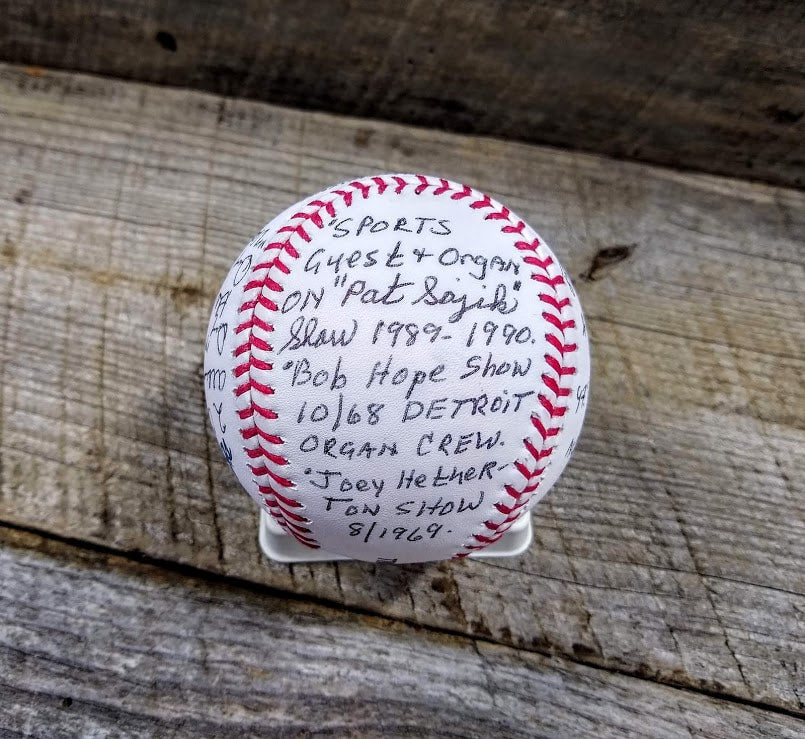 "SPORTS
Guest + Organ
ON "Pat Sajik"
Show 1989-1990.
"Bob Hope Show
10/68 DETROIT
ORGAN CREW.
"Joey Hether-
TON SHOW
8/1969.